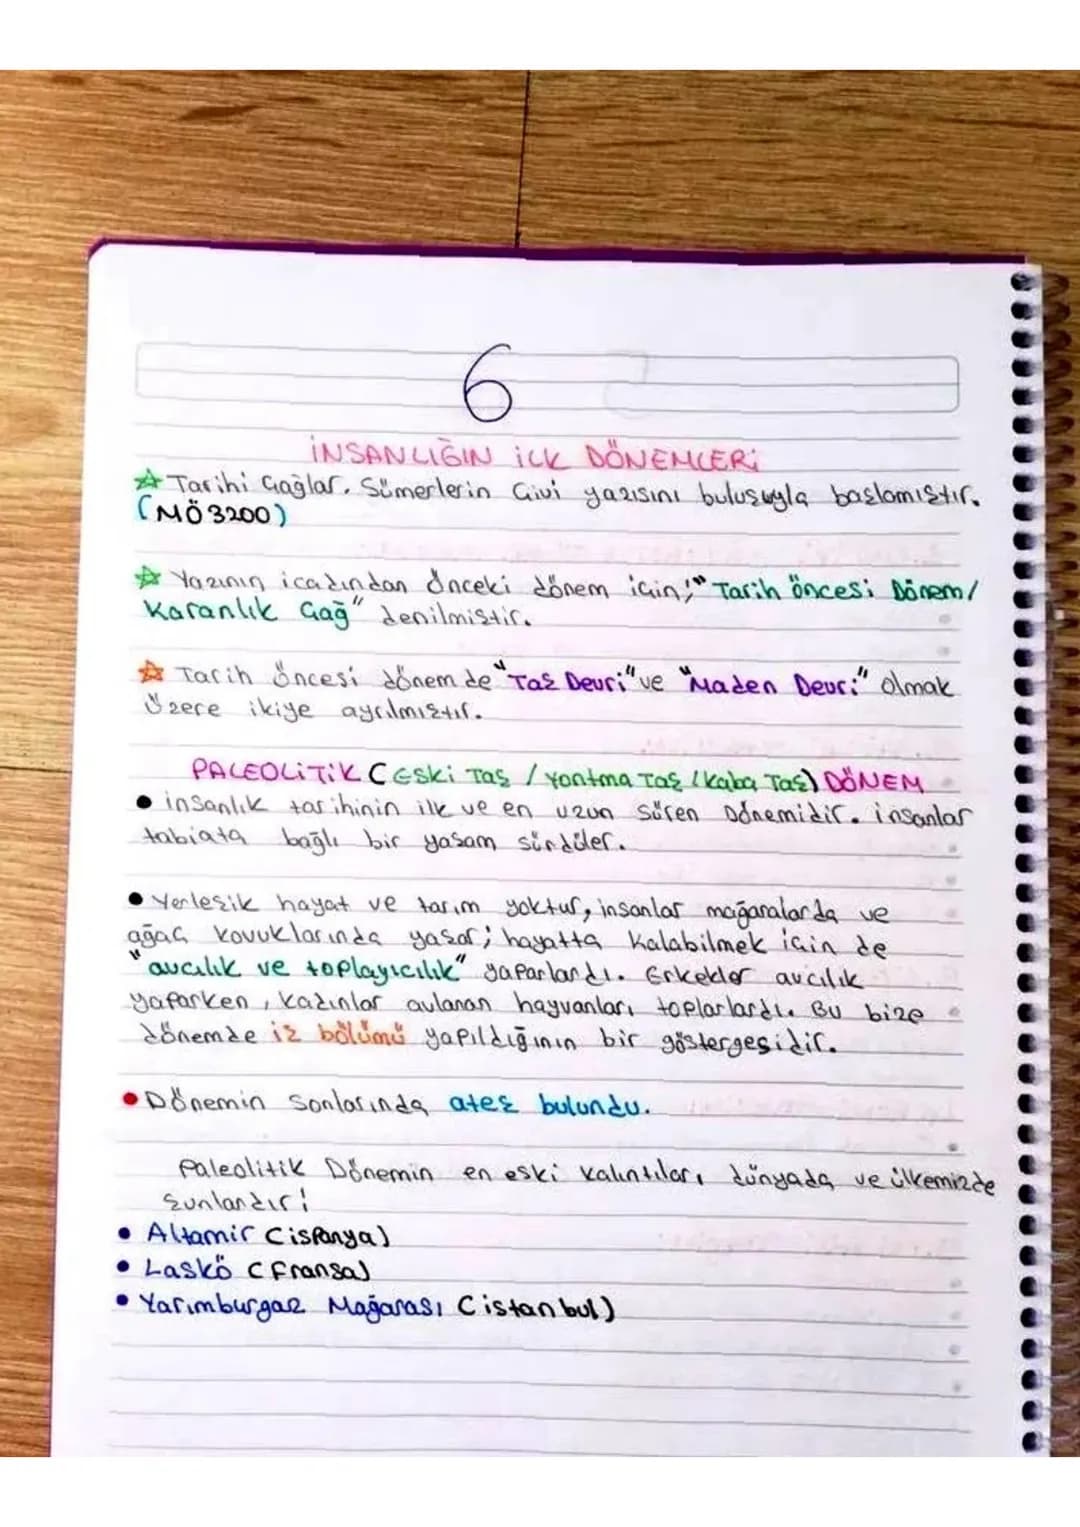 6
İNSANLIĞIN İLK DÖNEMLERİ
Tarihi Çağlar. Sümerlerin Çivi yazısını buluşuyla başlamıştır.
(MÖ 3200)
Yazının icadından önceki dönem için; "Tarih öncesi Dönem/
Karanlık Çağ" denilmiştir.
Tarih öncesi dönemde "Taş Devri" ve "Maden Devri" olmak
üzere ikiye ayrılmıştır.
PALEOLİTİK (Eski Taş / Yontma Taş / Kaba Taş) DÖNEM
• insanlık tarihinin ilk ve en uzun süren Dönemidir. insanlar
tabiata bağlı bir yaşam sürdüler.
• Yerleşik hayat ve tarım yoktur, insanlar mağaralarda ve
ağaç kovuklarında yaşar; hayatta kalabilmek için de
"avcılık ve toplayıcılık" yaparlardı. Erkekler avcılık
yaparken, kadınlar avlanan hayvanları toplarlardı. Bu bize
dönemde iş bölümü yapıldığının bir göstergesidir.
• Dönemin sonlarında ateş bulundu.
Paleolitik Dönemin en eski kalıntıları dünyada ve ülkemizde
şunlardır;
• Altamir (ispanya)
• Laskö (Fransa)
• Yarımburgaz Mağarası (istanbul)